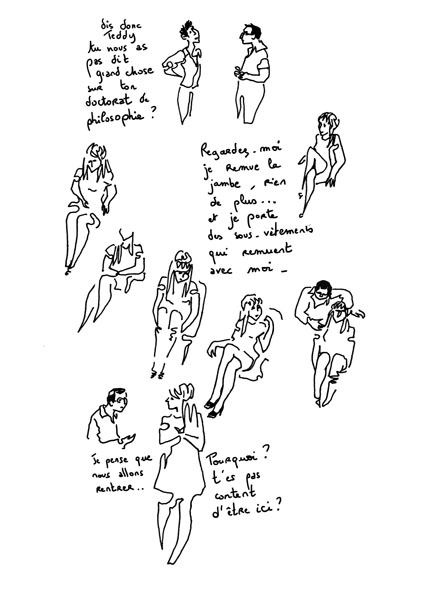 dis donc
Teddy
tu nous as
pas dit
grand chose
sur ton
doctorat de
philosophie ?
Regardez-moi
je remue la
jambe, rien
de plus...
et je porte
des sous-vêtements
qui remuent
avec moi -
Je pense que
nous allons
rentrer...
Pourquoi ?
t'es pas
content
d'être ici ?